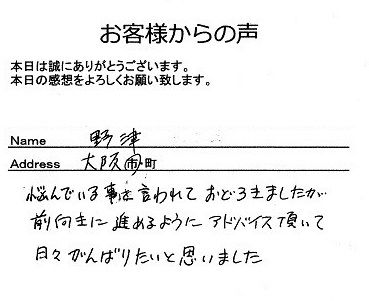 お客様からの声
本日は誠にありがとうございます。
本日の感想をよろしくお願い致します。
Name 野津
Address 大阪市町
悩んでいる事を言われておどろきましたが
前向きに進めるようにアドバイス頂いて
日々がんばりたいと思いました